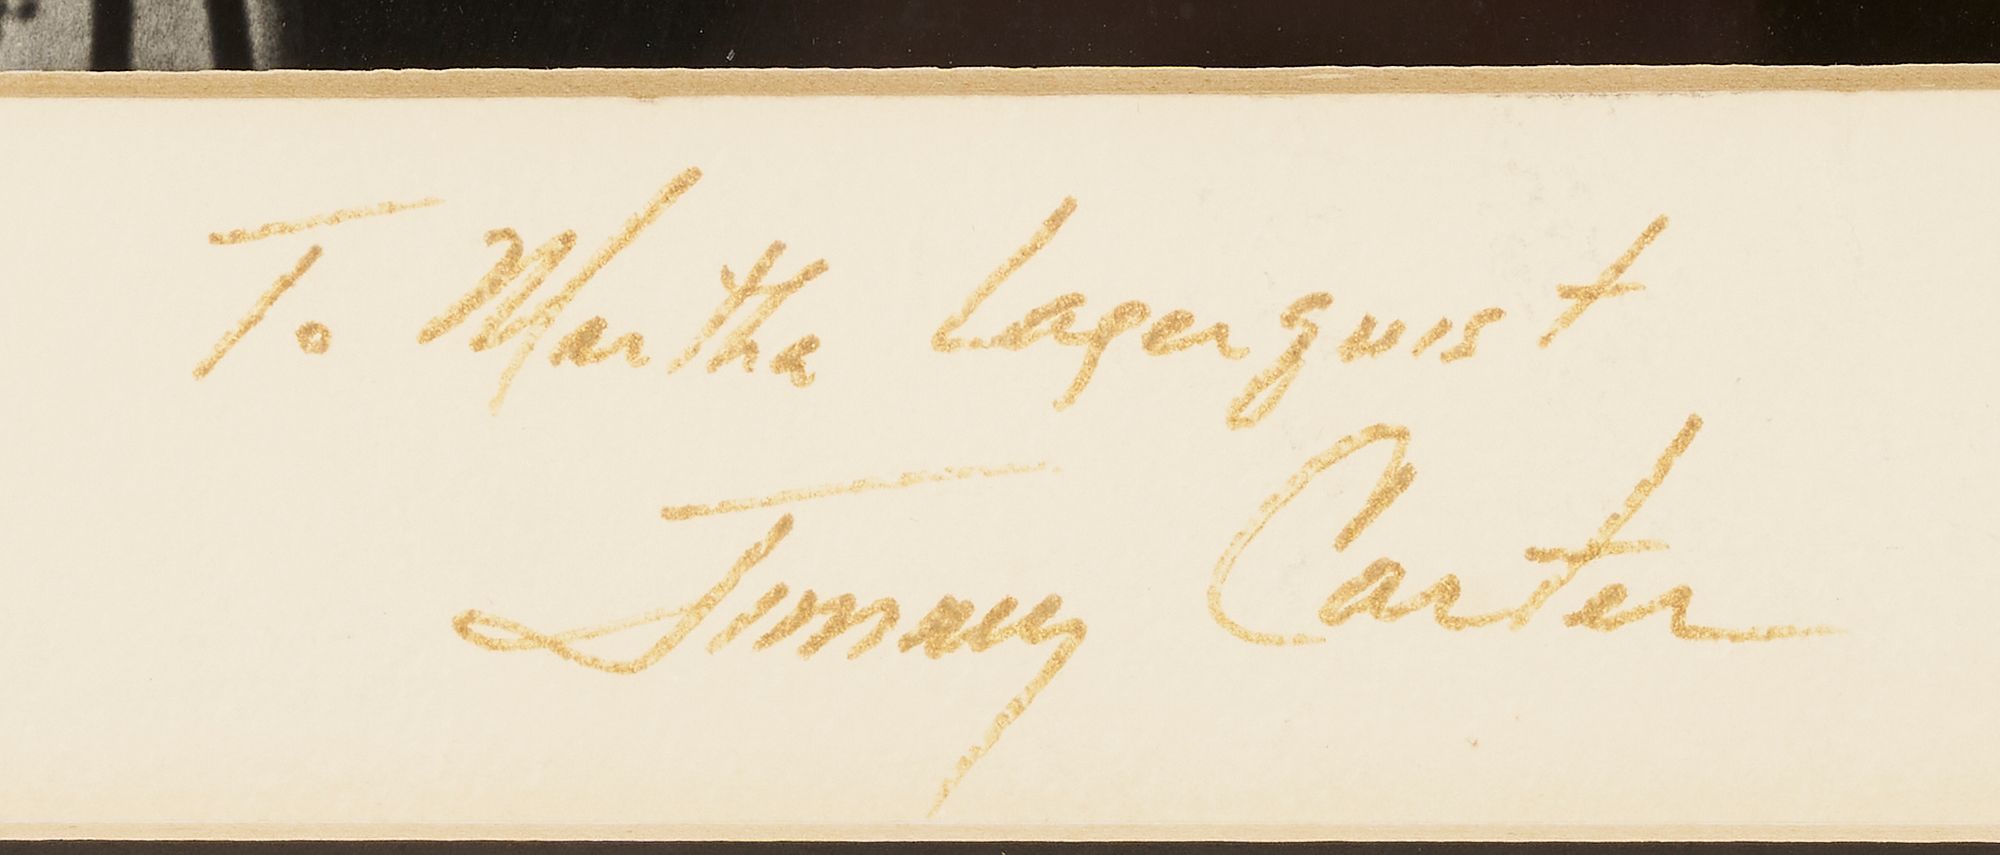 To Martha Lagerquist
Jimmy Carter